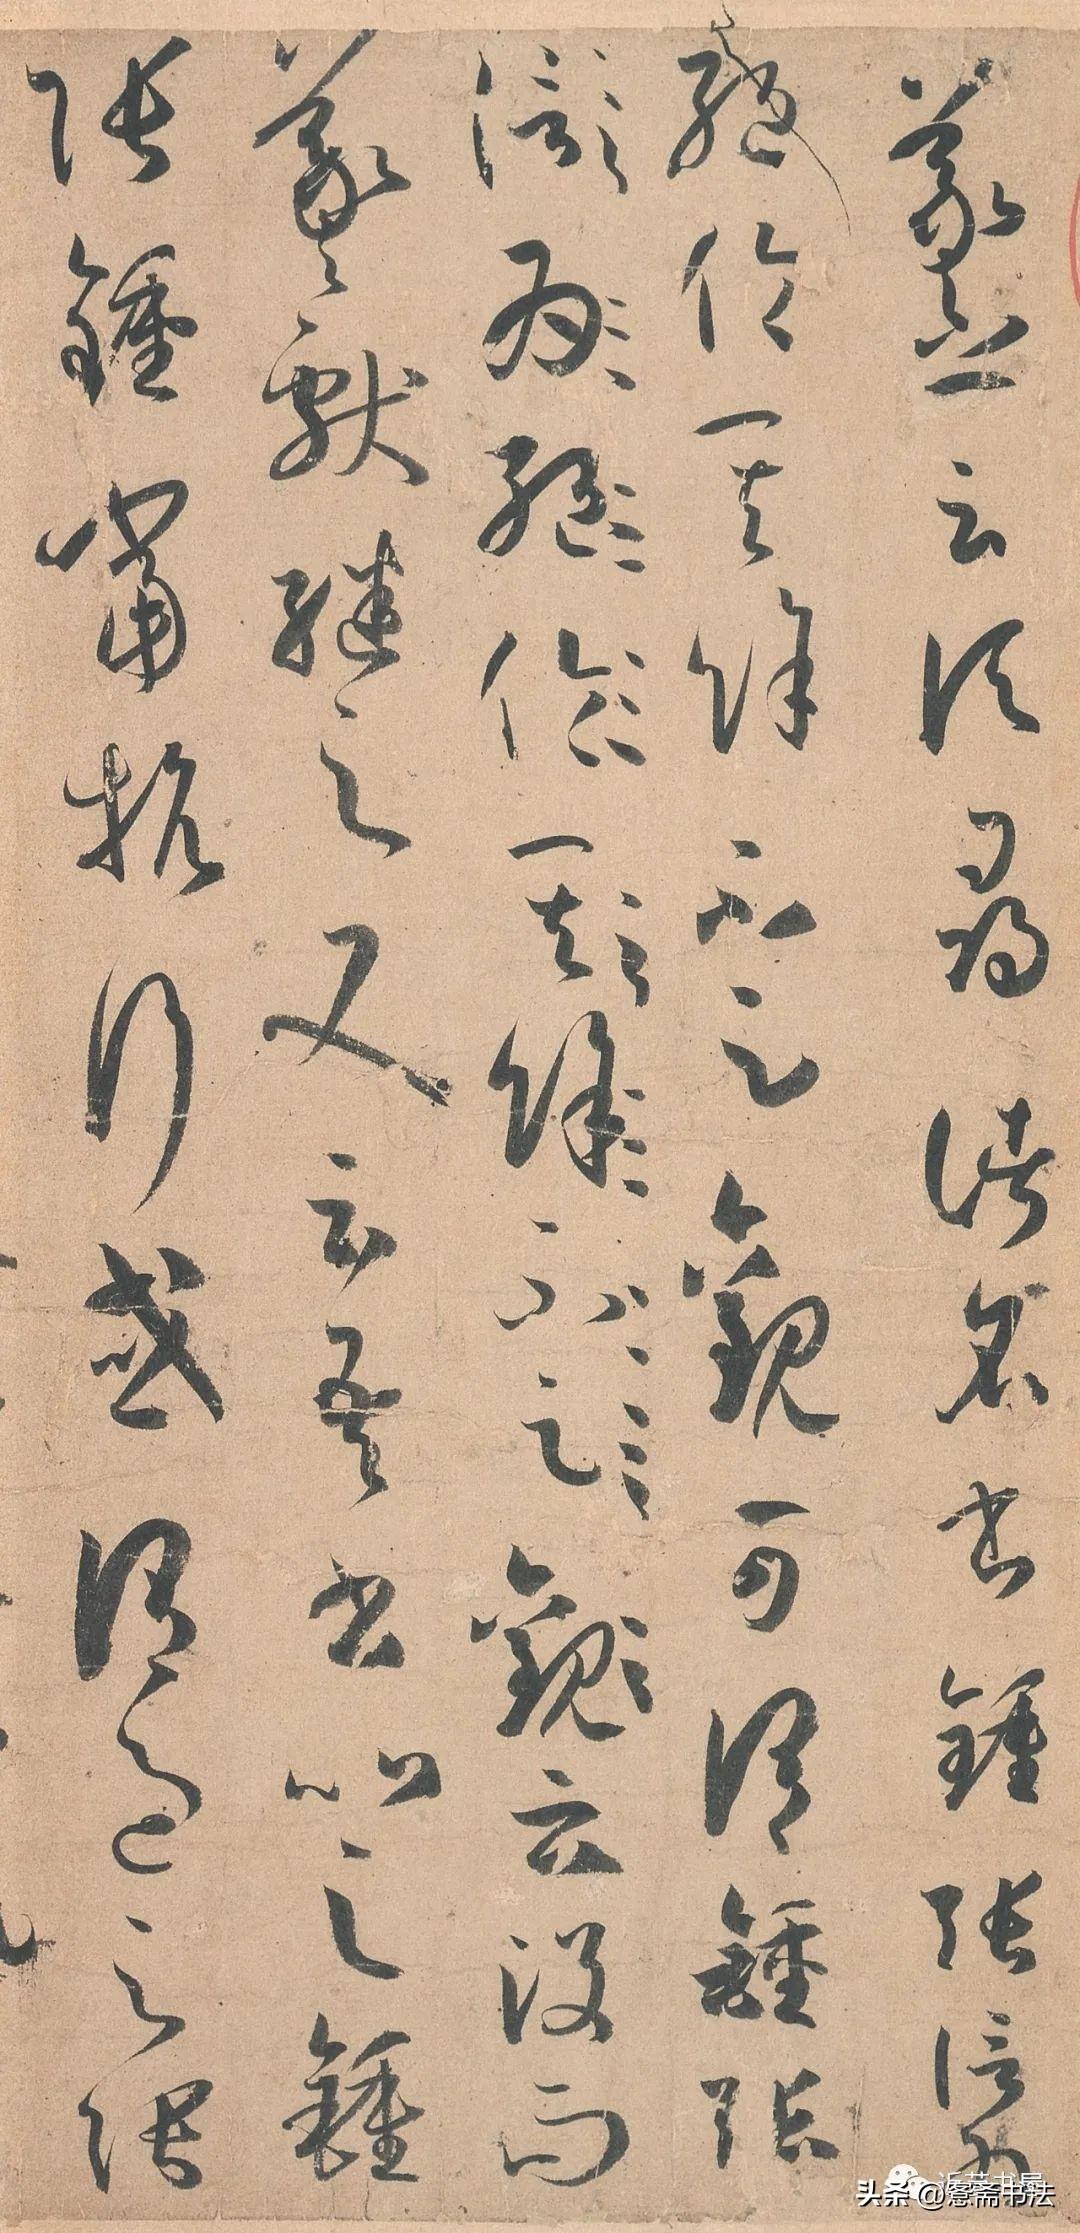 羲之云頃尋諸名書鍾張信為
絕倫其餘不足觀可謂鍾張
信為絕倫其餘不足觀云沒而
羲獻繼之又云吾書比之鍾
張鍾當抗行或謂過之張
头条 @愙斋书法